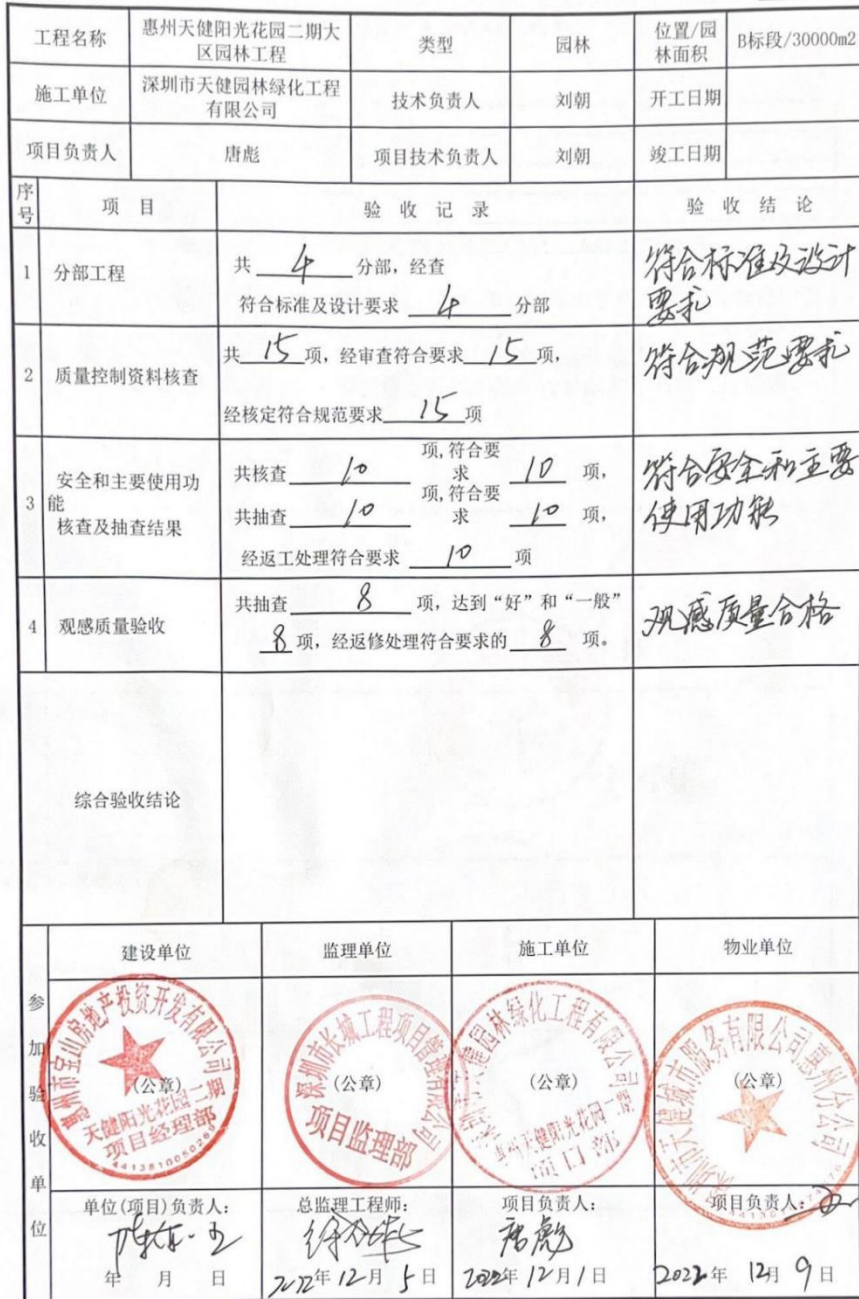 工程名称 惠州天健阳光花园二期大区园林工程 类型 园林 位置/园林面积 B标段/30000m2
施工单位 深圳市天健园林绿化工程有限公司 技术负责人 刘朝 开工日期
项目负责人 唐彪 项目技术负责人 刘朝 竣工日期
序号 项 目 验 收 记 录 验 收 结 论
1 分部工程 共 4 分部，经查
符合标准及设计要求 4 分部
符合标准及设计
要求
2 质量控制资料核查 共 15 项，经审查符合要求 15 项，
经核定符合规范要求 15 项
符合规范要求
3 安全和主要使用功能
核查及抽查结果
共核查 10 项,符合要求 10 项，
共抽查 10 项,符合要求 10 项，
经返工处理符合要求 10 项
符合安全和主要
使用功能
4 观感质量验收 共抽查 8 项，达到“好”和“一般”
8 项，经返修处理符合要求的 8 项，
观感质量合格
综合验收结论
参加验收单位
建设单位 监理单位 施工单位 物业单位
惠州市宝山房地产投资开发有限公司
(公章)
天健阳光花园二期
项目经理部
深圳市长城工程项目管理有限公司
(公章)
项目监理部
深圳市天健园林绿化工程有限公司
(公章)
惠州天健阳光花园二期
项目部
深圳市天健城市服务有限公司惠州分公司
(公章)
单位(项目)负责人： 总监理工程师： 项目负责人： 项目负责人：
唐彪
年 月 日 2022年 12月 5日 2022年 12月 1日 2022年 12月 9日